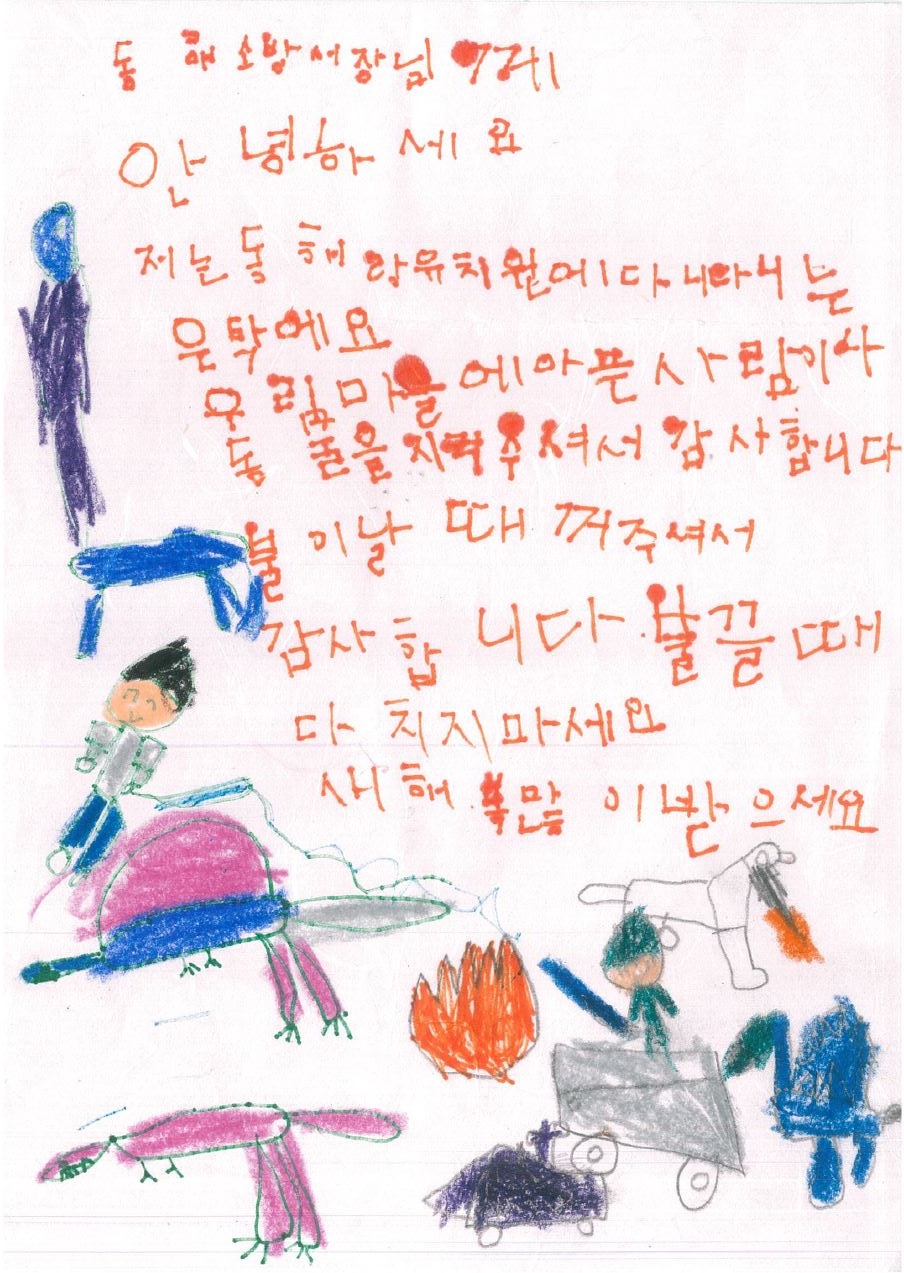 동해소방서장님께
안녕하세요
저는동해 유치원에다니다니는
운탁에요
우림마을에아픈사람
동굴을지켜주셔서 감사합니다
불이날 때 꺼주셔서
감사합니다 불끌때
다치지마세요
새해 복많이받으세요